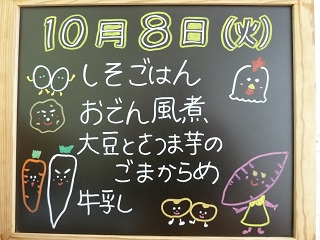 10月8日(火)
しそごはん
おでん風煮
大豆とさつま芋の
ごまからめ
牛乳